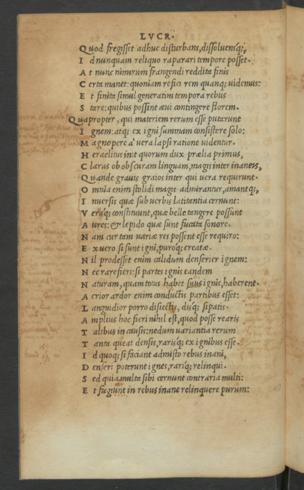 LVCR.
Quod fregisset adhuc disturbans, dissoluensq;,
Id nunquam reliquo raparari tempore posset.
At nunc nimirum frangendi reddita finis
Certa manet: quoniam refici rem quanq; uidemus:
Et finita simul generatim tempora rebus
Stare: quibus possint æui contingere florem.
Quapropter, qui materiem rerum esse putarunt
Ignem: atq; ex igni summam consistere solo:
Magnopere a' uera lapsi ratione uidentur.
Heraclitus init quorum dux prælia primus,
Clarus ob obscuram linguam, magis inter inaneis,
Quamde grauis graios inter qui uera requirunt.
Omnia enim stolidi magis admirantur, amantq;,
Inuersis quæ sub uerbis latitantia cernunt:
Veraq; constituunt, quæ belle tangere possunt
Aures: & lepido quæ sunt fucata sonore.
Nam cur tam uariæ res possent esse requiro:
Ex uero si sunt igni, puroq; creatæ.
Nil prodesset enim calidum denserier ignem:
Nec rarefieri: si partes ignis eandem
Naturam, quam totus habet ignis, haberent.
Acrior ardor enim conductis partibus esset:
Languidior porro disiectis, disq; sipatis.
Amplius hoc fieri nihil est, quod posse rearis
Talibus in causis: nedum variantia rerum
Tanta queat densis, rarisq; ex ignibus esse.
Id quoq; si faciant admisto rebus inani,
Denseri poterunt ignes, rariq; relinqui.
Sed quia multa sibi cernunt contraria multi:
Et fugiunt in rebus inane relinquere purum: